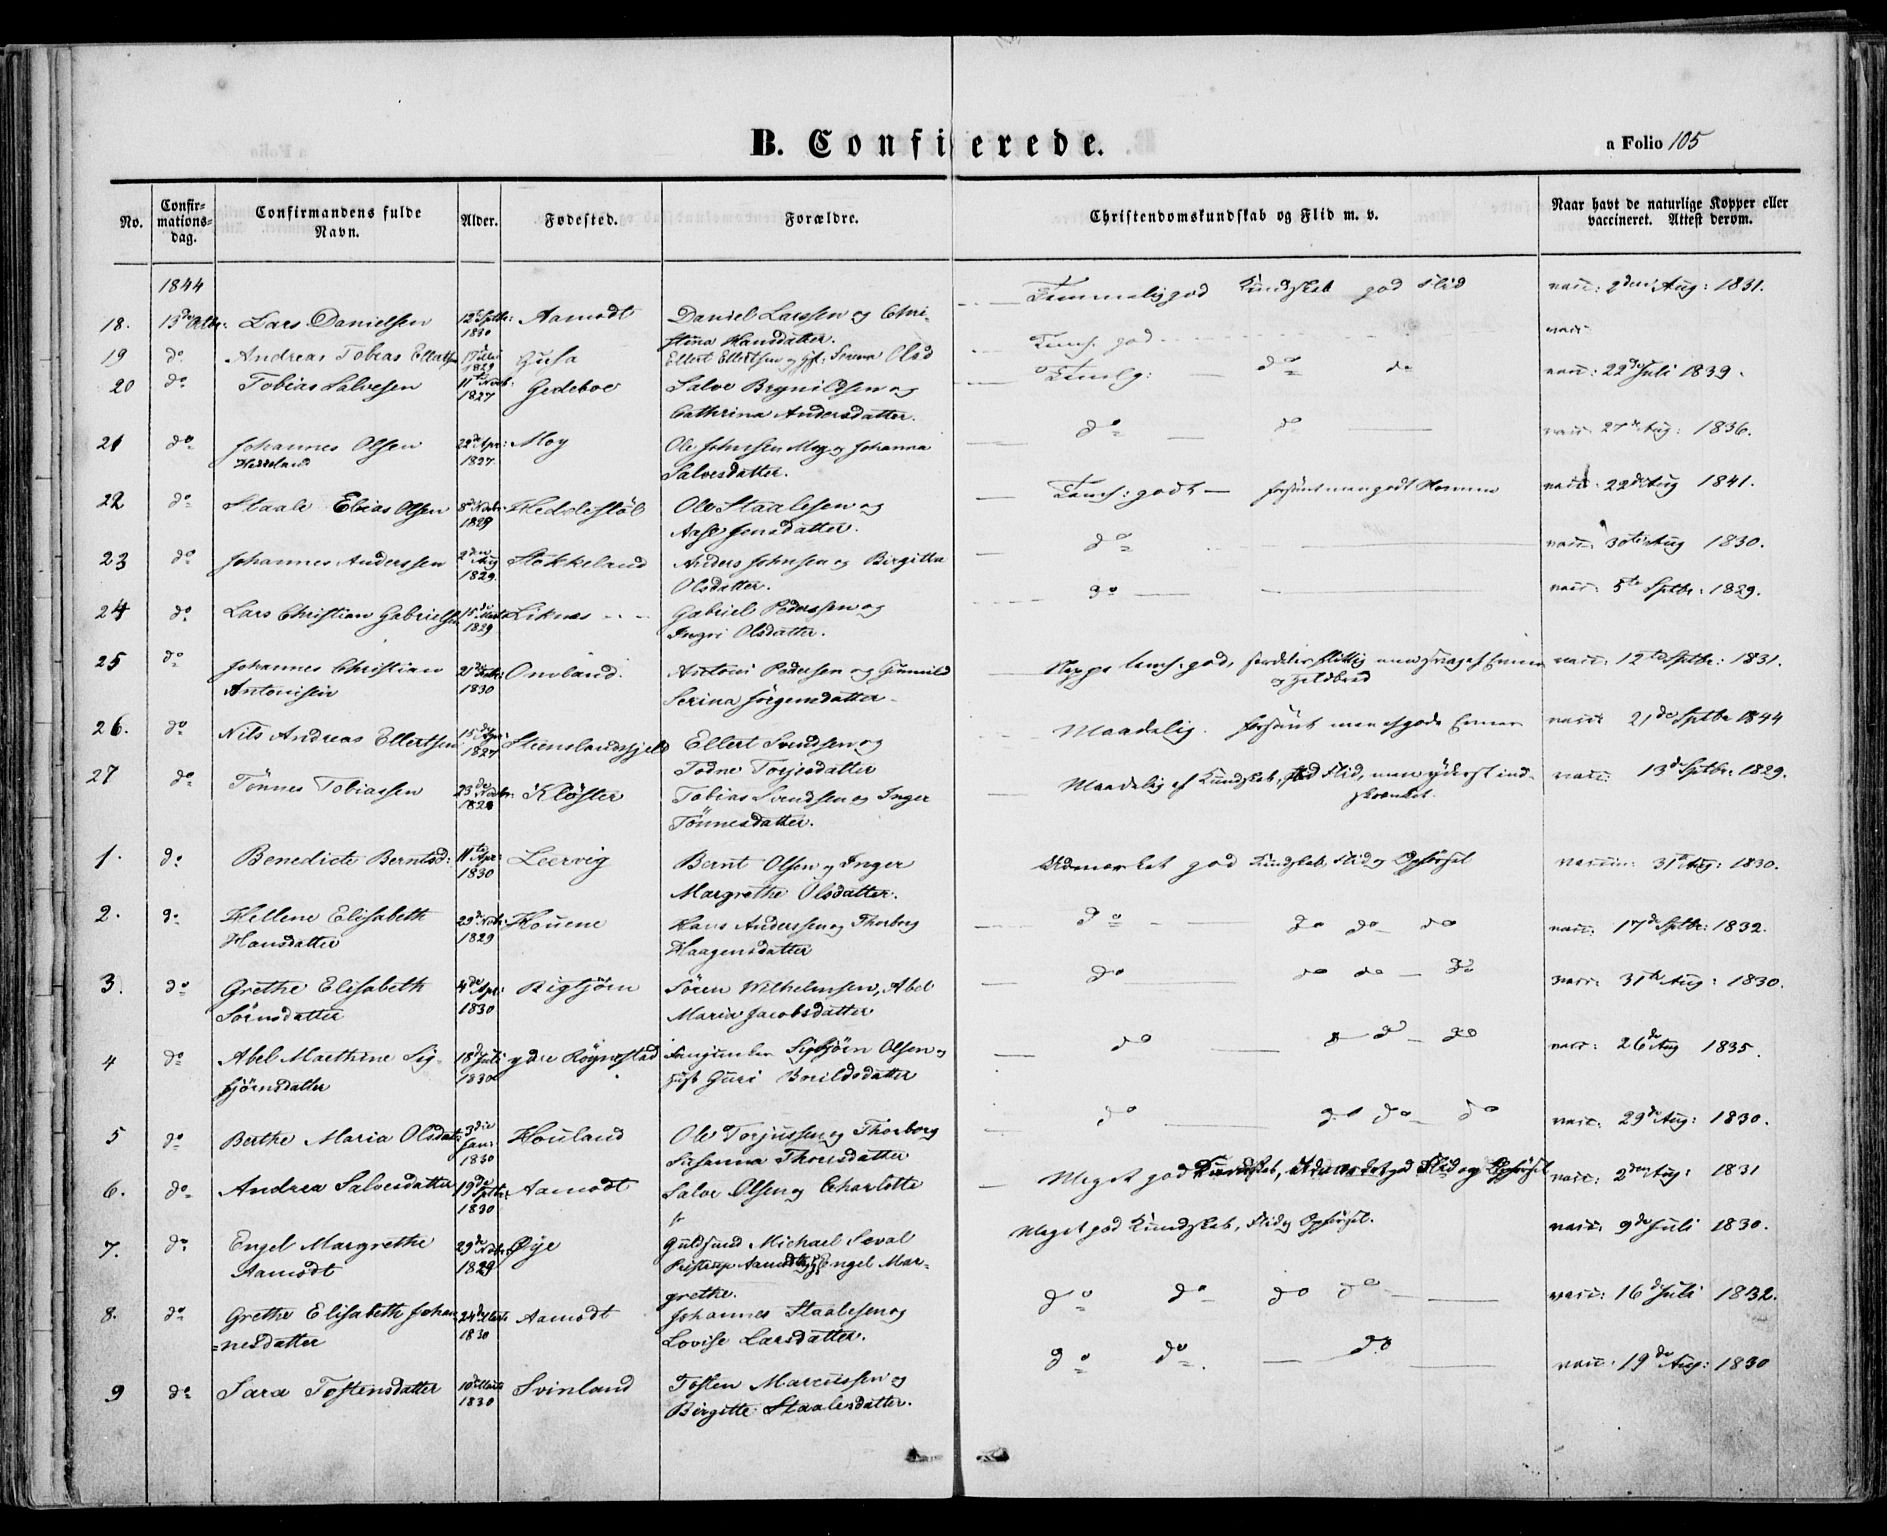 B. Confirerede.
a Folio 105
No.
Confir-
mations-
dag.
Confirmandens fulde
Navn.
Alder.
Fødested.
Forældre.
Christendomskundskab og Flid m. v.
Naar havt de naturlige Kopper eller
vaccineret. Attest derom.
1844
18. 13de Octbr: Lars Danielsen 12te Sptbr: 1830 Aamodt Daniel Larssen og Chri-
stina Hansdatter. god Kundskab god Flid vacc: 2den Aug: 1831.
19 do Andreas Tobias 1829 Gusa Ellert Ellertsen og Serina Olsd god vacc:
20 do Tobias Salvesen 11te Novb: 1827 Gedeboe Salve Brynildsen og
Cathrina Andersdatter. do do vacc: 22de Juli 1839.
21 do Johannes Olsen 22de Apr: 1827 Moy Ole Johnsen Moy og Johanna
Salvesdatter. do do vacc: 27de Aug: 1836.
22 do Staale Elias Olsen 8de Novbr 1829 Heddestøl Ole Staalesen og
Aase Jensdatter. godt vacc: 22de Aug 1841.
23 do Johannes Anderssen 2den Aug 1829 Stokkeland Anders Johnsen og Birgitta
Olsdatter. do vacc: 30te Aug 1830.
24 do Lars Christian Gabrielsen 15de 1829 Liknes Gabriel Pederssen og
Ingri Olsdatter. do vacc: 5te Sptbr: 1829.
25 do Johannes Christian
Antonisen 21de 1830 Omland. Antoni Pedersen og Gunnild
Serina Jørgensdatter god, flittig men vacc: 12te Sptbr: 1831.
26. do Nils Andreas Ellertsen 15de Apr: 1827 Steenslandsfjeld Ellert Svendsen og
Todne Torjesdatter Maadelig. men vacc: 21de Sptbr 1844
27 do Tønnes Tobiassen 23de Novbr: Kløster Tobias Svendsen og Inger
Tønnesdatter. Maadelig af Kundskab, god Flid, men yderst ind-
skrænket. vacc: 13de Sptbr: 1829.
1. do Benedicte Berntsd: 11te Apr: 1830 Leervig Bernt Olsen og Inger
Margrethe Olsdatter. Udmærket god Kundskab, Flid og Opførsel vaccin: 31te Aug: 1830.
2. do Hellene Elisabeth
Hansdatter 29de Novbr: 1829 Houene Hans Anderssen og Thorborg
Haagensdatter do do do do vacc: 17de Sptbr: 1832.
3. do Grethe Elisabeth
Sørnsdatter 4de Apr: 1830 Rigtjørn Søren Wilhelmsen, Abel
Maria Jacobsdatter do do do do vacc: 31te Aug: 1830.
4 do Abel Marthine Sig-
bjørnsdatter 18de Juli 1830 ydre Røynestad Sigbjørn Olsen og
Guri Borildsdatter do do do vacc: 26de Aug 1835.
5 do Berthe Maria Olsdatter 3die Jan: 1830 Houland Ole Torjussen og Thorborg
Susanna Thorsdatter do do do do vacc: 29de Aug: 1830.
6. do Andrea Salvesdatter 19de Sptbr: 1830 Aamodt Salve Olsen og Charlotte
Meget god Kundskab, udmærket god Flid og Opførsel vacc: 2den Aug: 1831
7. do Engel Margrethe
Aamodt 29de Novbr: 1829 Øye Guldsmed Michael Sæval
Aamodt og Engel Mar-
grethe. Meget god Kundskab, Flid og Opførsel. vacc: 9de Juli 1830.
8. do Grethe Elisabeth Johan
=nesdatter 24de Marts 1830 Aamodt Johannes Staalesen og
Lovise Larsdatter. do do do do vacc: 16de Juli 1832.
9 do Sara Tostensdatter 10de Marts 1830 Svinland Tosten Marcussen og
Birgitte Staalesdatter. do do do vacc: 19de Aug: 1830